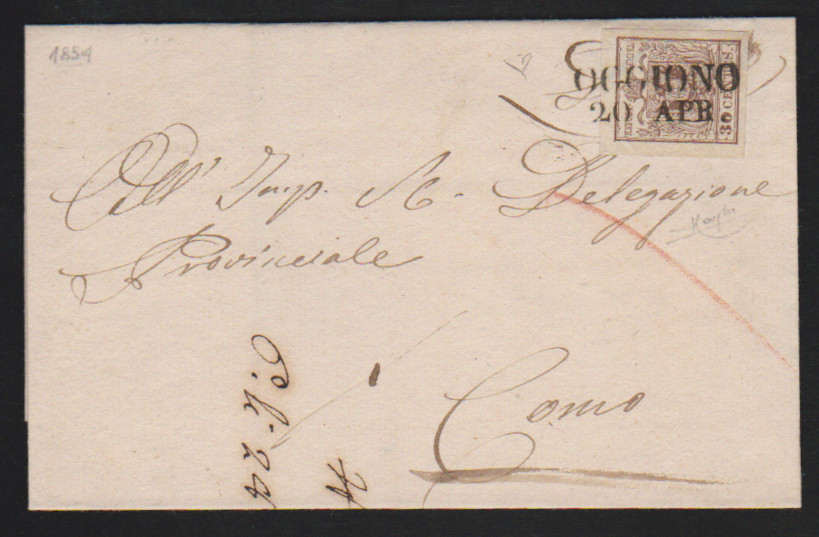 1854
OGGIONO
20 APR
30 CENTES.
All' Imp. R. Delegazione
Provinciale
Como